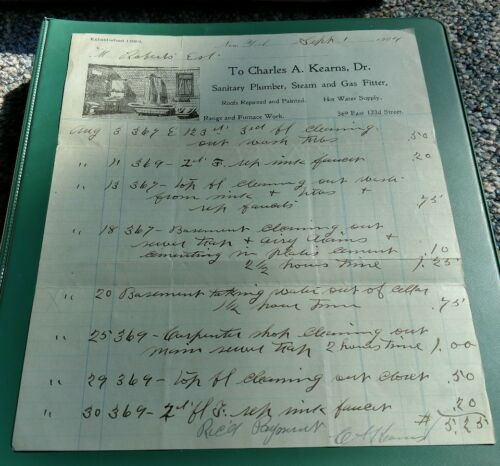 Established 1884.
New York Sept. 1 1904
M Roberts Est.
To Charles A. Kearns, Dr.
Sanitary Plumber, Steam and Gas Fitter,
Roofs Repaired and Painted. Hot Water Supply,
Range and Furnace Work. 369 East 123d Street.
Aug 3 367 E 123d 3rd fl cleaning
out wash tubs .50
" 11 369 - 2d F. rep sink faucet .20
" 13 367 - top fl cleaning out wash
from sink + tubs +
rep faucets .75
" 18 367 - Basement cleaning out
sewer trap + airy drains +
cementing in plates cement .10
2 1/2 hours time 1.25
" 20 Basement taking water out of cellar
1 1/2 hour time .75
" 25 369 - Carpenter shop cleaning out
main sewer trap 2 hours time 1.00
" 29 369 - top fl cleaning out closet .50
" 30 369 - 2d fl F. rep sink faucet .20
# 5.25
Rec'd Payment C A Kearns